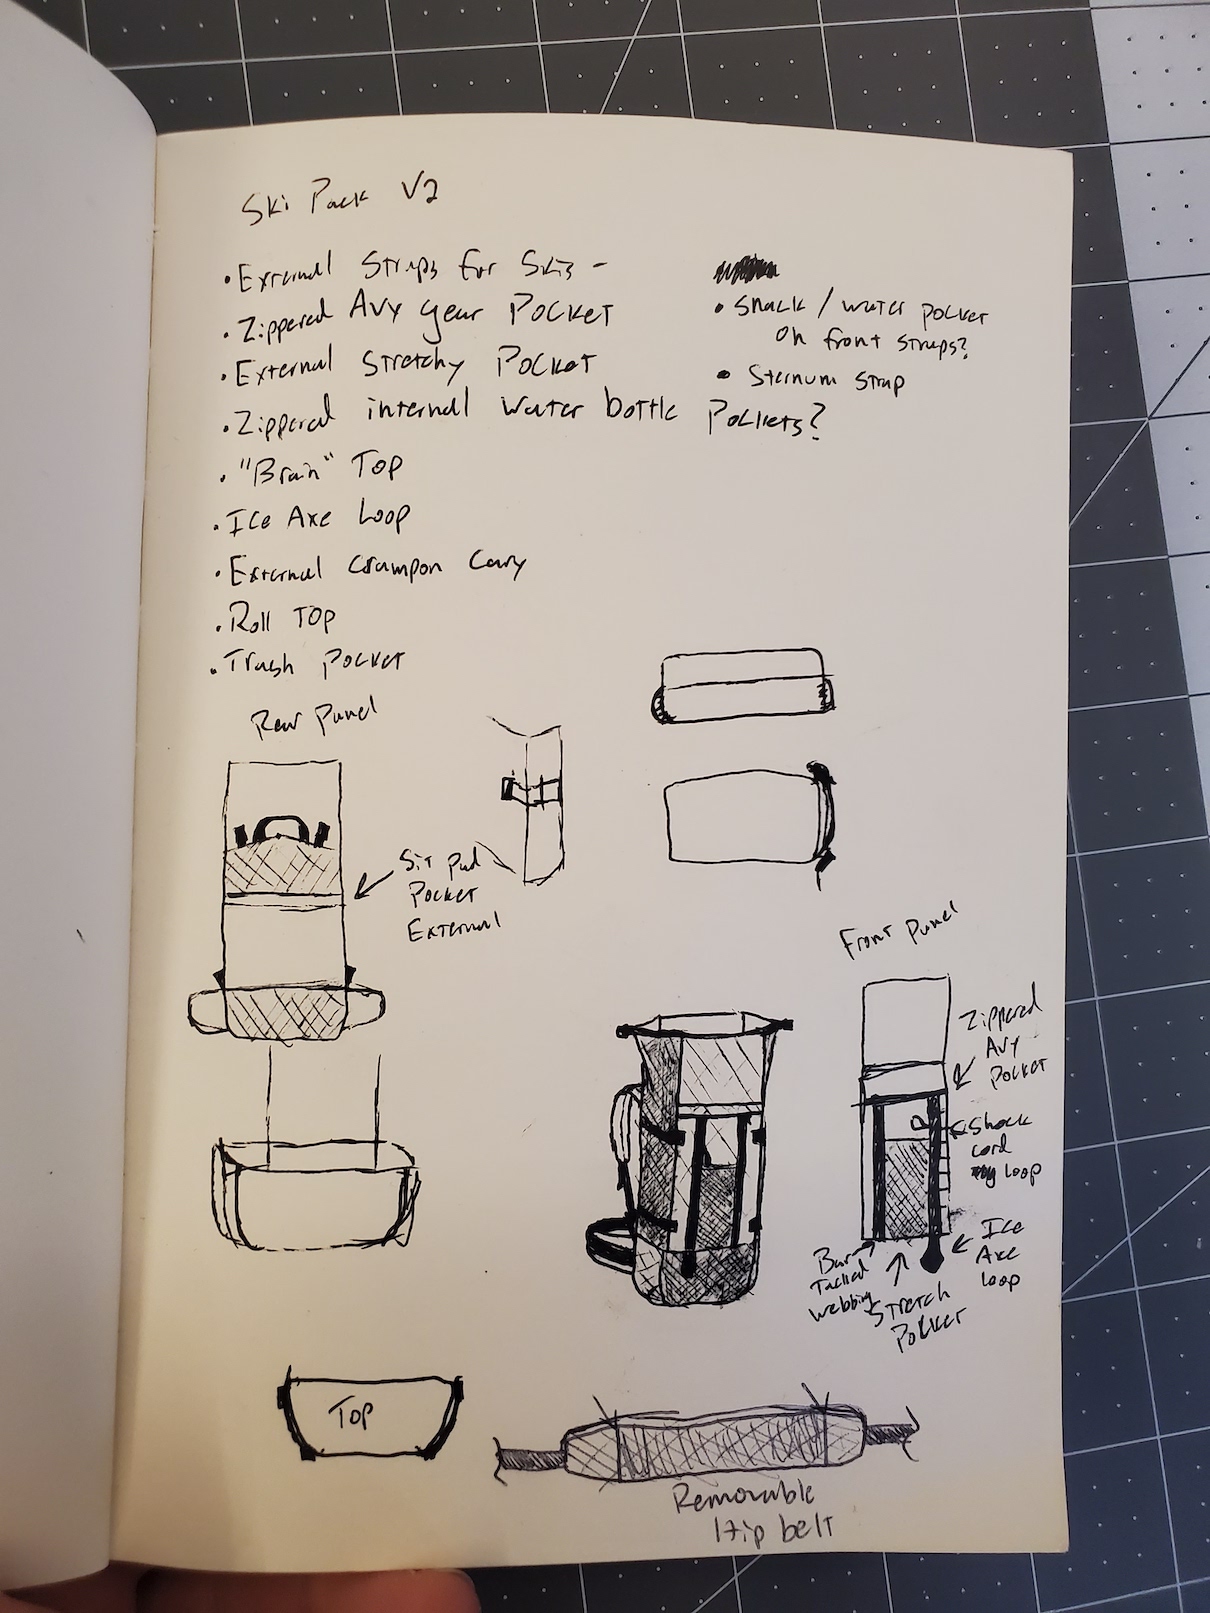 Ski Pack V2
• External Straps for Skis -
• Zippered Avy gear Pocket
• External Stretchy Pocket
• Zippered internal Water bottle Pockets?
• "Brain" Top
• Ice Axe Loop
• External Crampon Carry
• Roll Top
• Trash Pocket
• Snack / water pocket
on front straps?
• Sternum Strap
Rear Panel
Sit pad
Pocket
External
Front Panel
Zippered
Avy
Pocket
Shock
cord
loop
Ice
Axe
Loop
Bar
Tacked
Webbing
Stretch
Pocket
Top
Removable
Hip belt